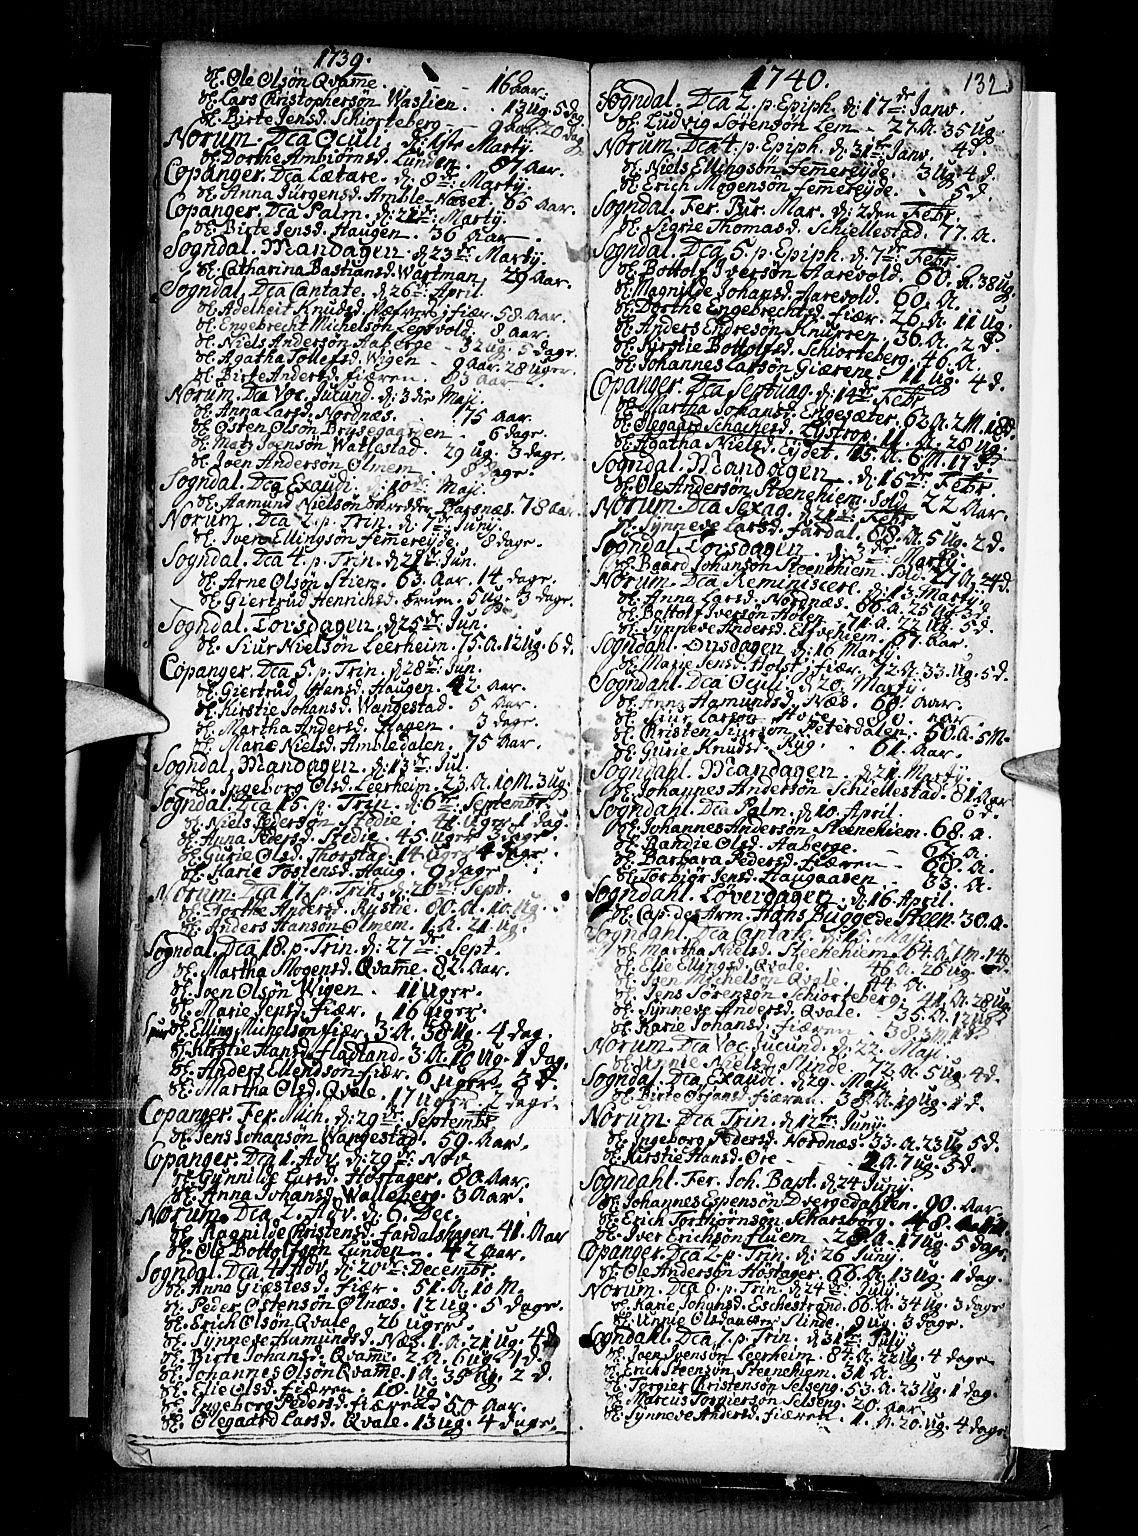 1739.
Ole Olsøn Qvame. 16 Aar.
Lars Christophersøn Waslien. 13 ug. 5 dg.
Birte Jensd. Schiorteberg 9 aar. 20 dag
Norum. Dca Oculi, d: 1ste Martij.
Dorthe Ambiørnsd. Lunden. 87 Aar.
Copanger. Dca Lætare. d: 8de Martij.
Anna Jürgensd. Amble-Næset. 65 Aar.
Copanger. Dca Palm. d: 22 Martij.
Birte Jensd. Haugen. 36 Aar.
Sogndal. Mandagen d 23 Martij.
Catharina Bastiansd. Wartman 29 Aar.
Sogndal. Dca Cantate. d 26 April.
Adelheit Knudsd. fiær. 58. Aar.
Engebrecht Michelsøn Legvold. 8 aar.
Niels Andersøn Aaberge 32 ug. 5 dage.
Agatha Tollefsd. Wigen 9 Aar. 28 uger.
Birte Andersd. fiæren. 63 Aar.
Norum. Dca Voc. Jucund. d: 3die Maji.
Anna Larsd. Nordnæs. 75 Aar.
Østen Olsøn 6 dage.
Mats Joensøn Watlestad. 29 ug. 3 dage.
Joen Andersøn Olmem 8 dage.
Sogndal. Dca Exaudi. d: 10 Maji.
Aamund Nielsøn Barsnæs. 78 aar.
Norum. Dca 2. p. Trin. d: 7de Junij.
Iver Ellingsøn femereyde. 8 dage.
Sogndal. Dca 4. p. Trin. d 21 Jun.
Arne Olsøn Stien. 63. Aar. 14 dage.
Giertrud Henrichsd. bruun. 5 ug. 3 dage.
Sogndal. Torsdagen, d 25 Jun.
Siur Nielsøn Leerheim. 75. a. 12 ug. 6 d.
Copanger. Dca 5. p. Trin. d 28 Jun.
Giertrud Hansd. Haugen. 42 Aar.
Kirstie Johansd. Wangestad. 5 Aar.
Martha Andersd. Hagen. 3 dage.
Marie Nielsd. Ambledalen. 75 Aar.
Sogndal. Mandagen. d: 13 Jul.
Ingeborg Olsd. Leerheim. 23. a. 10 M. 3 ug.
Sogndal Dca 15. p. Trin. d: 6 Septembr.
Niels Pedersøn Stedie. 41 uger 1 dag.
Anna Pedersd. Stedie. 45 uger. 3 dage.
Gurie Olsd. Thorstad. 14 uger 4 dage.
Karie Tostensd. Haug. 9 dage.
Norum. Dca 17. p. Trin. d: 20 Sept.
Dorthe Andersd. Rystie. 80. a. 10 ug.
Anders Hansøn Olmem. 1. a. 21 ug.
Sogndal Dca 18. p. Trin. d: 27 Sept.
Martha Mogensd. Qvame. 82. Aar.
Joen Olsøn Wigen. 11 uger.
Marie Jepsd. fiær. 16 uger.
Elling Michelsøn fiær. 3. a. 38 ug. 4 dag.
Kirstie Hansd. fladland. 3. a. 10 ug. 1 dag.
Anders Ellendsøn fiær. 6 uger. 3 d.
Martha Olsd. Qvale. 17 uger. 2 dage.
Copanger. Fer. Mich. d: 29 Septembr.
Jens Johansøn Wangestad. 59. Aar.
Copanger. Dca 1. Adv. d: 29 Nov.
Gunnilde Larsd. Høstager. 80. Aar.
Anna Johansd. Walleberg. 3 Aar.
Norum. Dca 2. Adv. d: 6. Dec.
Ragnilde Christensd. fardalshagen. 41. Aar
Ole Bottolfsøn Lunden. 42 aar.
Sogndal. Dca 4. Adv. d: 20 Decembr.
Anna Giæstesd. fiær. 51. a. 10 M.
Peder Østensøn Ølnæs. 12 ug. 5 dage.
Erich Olsøn Qvale. 26 uger.
Synneve Aamundsd. Næs. 1. a. 21 ug. 4 d
Birte Johansd. Qvame. 2. a. 6 ug. 1 d.
Johannes Olsøn Qvame. 1 a. 35 ug. 2 d.
Elie Olsd. fiæren. 18. ug.
Ingeborg Pedersd. fiæren. 50 Aar.
Olegaard Larsd. Qvale. 13 ug. 4 dage.
1740.
132
Sogndal. Dca 2. p. Epiph. d: 17 Janv.
Ludvig Sørensøn Lem. 27. a. 35 ug.
Norum. Dca 4. p. Epiph. d: 31 Janv. 4 d.
Niels Ellingsøn femereyde. 3 ug. 4 d.
Erich Mogensøn femereyde. 5 d.
Sogndal. Fer. Pur. Mar. d: 2den Febr.
Sigrie Thomasd. Schiellestad. 77. a.
Sogndal. Dca 5. p. Epiph. d: 7 Febr
Bottolf Iversøn Aarevold. 60. a. 38 ug.
Magnilde Johansd. Aarevold. 60. a.
Dorthe Engebrechtsd. fiær. 26. a. 11 ug.
Anders Endresøn Knurren. 36. a. 2 d.
Kirstie Bottolfsd. Schiorteberg. 46. a.
Johannes Larsøn Giærene. 11 ug. 4 d.
Copanger. Dca Septuag. d: 14 Febr
Martha Johansd. Engesæter. 62. a. 2 M. 18 d.
Olegaard Schachesd. Lystrop. 11. a. 28 ug.
Agatha Nielsd. Eydet. 15. a. 6 M. 17 d.
Sogndal. Mandagen. d: 15 Febr.
Ole Andersøn Steenehiem. Sold. 22 Aar.
Norum. Dca Sexag. d: 21 Febr
Synneve Larsd. fardal. 68. a. 5 ug. 2 d.
Sogndal. Torsdagen. d: 3 Martij.
Baard Johansøn Steenehiem. Sold. 27. a. 24 d.
Norum. Dca Reminiscere. d: 13 Martij
Anna Larsd. Nordnæs. 66. a. 25 ug. 2 d.
Bottolf Iversøn Holen. 71. a. 22 ug. 5 d.
Synneve Andersd. Elfvehiem. 67. Aar.
Sogndahl. Onsdagen. d: 16 Martij.
Marie Jensd. Holst, fiær. 72. a. 33. ug. 5 d.
Sogndahl. Dca Oculi. d 20. Martij.
Anna Aamundsd. Næs. 60. aar.
Siur Larsøn Hofe. 90. aar.
Christen Siursøn Peterdalen. 50. a. 5 M.
Gurie Knudsd. Ryg. 61. Aar.
Sogndahl. Mandagen. d 21. Martij.
Johannes Andersøn Schiellestad. 81. Aar
Sogndahl. Dca Palm. d. 10. April. 6 d.
Johannes Andersøn Steenehiem. 68. a.
Randie Olsd. Aaberge. 62. a.
Barbara Pedersd. fiæren. 68. a.
Torbiør Jensd. Haugaasen. 63. a.
Sogndahl. Løverdagen. d. 16 April.
Cap. des Arm. Hans Bugge de Steen. 30. a.
Sogndahl. Dca Cantate. d: 15. Maji.
Martha Nielsd. Steenehiem. 64. a. 7 M. 14 d.
Elie Ellingsd. Qvale. 46. a. 26 ug.
Joen Michelsøn Qvale. 44. a.
Jens Sørensøn Schiorteberg. 41. a. 28 ug
Synneve Andersd. Qvale. 35. a. 17 ug.
Karie Johansd. fiæren. 38.
Norum. Dca Voc. Jucund. d: 22. Maji.
Unnie Nielsd. Slinde. 72. a. 5 ug. 4 d.
Sogndal. Dca Exaudi. d: 29. Maji.
Birte Ørjansd. fiæren. 38. a. 19 ug. 1 d.
Norum. Dca Trin. d 12 Junij.
Ingeborg Pedersd. Nordnæs. 33. a. 23 ug. 5 d.
Kirstie Hansd. Øre 2. a. 7 ug. 5 d.
Sogndahl. Fer. Joh. Bapt. d: 24 Junij.
Johannes Espensøn Dvergedahlen. 90. Aar.
Erich Torbiørnsøn Scharsborg. 48.
Iver Erichsøn fluem. a. 17 ug. 5 dage.
Copanger. Dca 2. p. Trin. d: 26 Junij.
Ole Andersøn Høstager. 66. a. 13 ug. 1 dag.
Norum. Dca 6. p. Trin. d: 24 Julij.
Karie Johansd. Eschestrand. 66. a. 34 ug. 3 dage
Unnie Olsdaatter Slinde. 9 ug. 3 dage.
Sogndahl. Dca 7. p. Trin. d 31 Julij.
Joen Svensøn Leerheim. 84. a. 22 ug. 4 dage.
Erich Steensøn Steenehiem. 31. a.
Torgier Christensøn Selseng. 53. a. 23 ug. 1 dag.
Marcus Torgiersøn Selseng. 20. aar.
Synneve Andersd. fiæren. 1. a. 20. ug. 4 dage